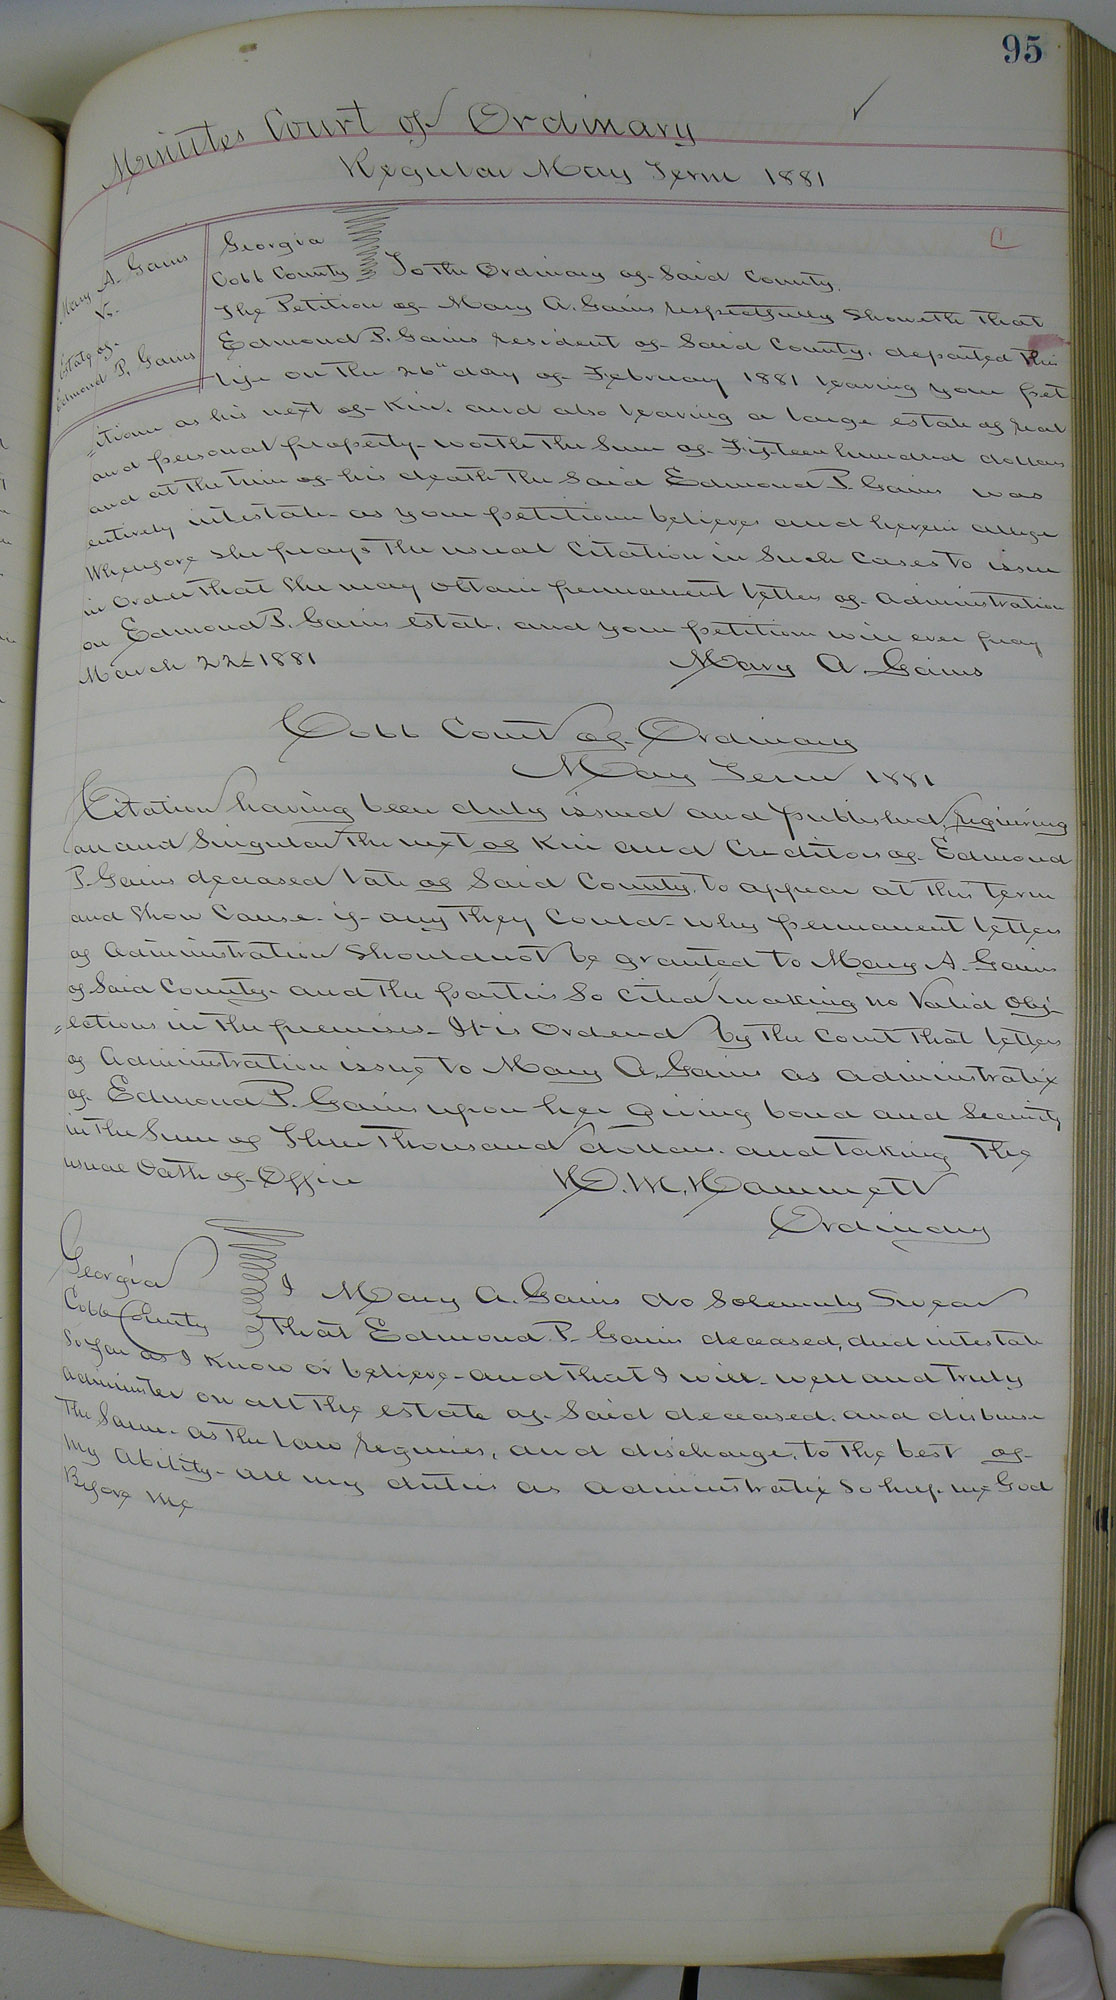 95
Minutes Court of Ordinary
Regular May Term 1881
Mary A. Gains
Vs.
Estate of
Edmond P. Gains
Georgia
Cobb County To the Ordinary of Said County.
The Petition of Mary A. Gains respectfully Showeth That
Edmond P. Gains resident of Said County, departed this
life on the 26" day of February 1881 leaving your pet
=itioner as his next of Kin. and also leaving a large estate of real
and personal property worth the Sum of Fifteen hundred dollars
and at the time of his death the Said Edmond P. Gains was
entirely intestate as your petitioner believes and herein allege
Wherefore She prays the usual Citation in Such Cases to issue
in Order that She may obtain permanent letters of administration
on Edmond P. Gains estate, and your petitioner will ever pray
March 22d 1881 Mary A. Gains
Cobb Court of Ordinary
May Term 1881
Citation having been duly issued and published requiring
all and Singular the next of Kin and Creditors of Edmond
P. Gains deceased late of Said County, to appear at this term
and Show Cause if any They Could why permanent letters
of Administration Should not be granted to Mary A. Gains
of Said County and the parties So Cited making no Valid obj-
=ections in the premises. It is Ordered by the Court That letters
of Administration issue to Mary A. Gains as administratrix
of Edmond P. Gains upon her giving bond and Security
in the Sum of Three Thousand dollars. and taking The
usual Oath of Office H. M. Hammett
Ordinary
Georgia I Mary A. Gains do Solemnly Swear
Cobb County That Edmond P. Gains deceased, died intestate
So far as I know or believe and that I will well and truly
administer on all the estate of Said deceased. and disburse
the Same as the law requires, and discharge, to the best of
my ability all my duties as administratrix So help me God
Before Me